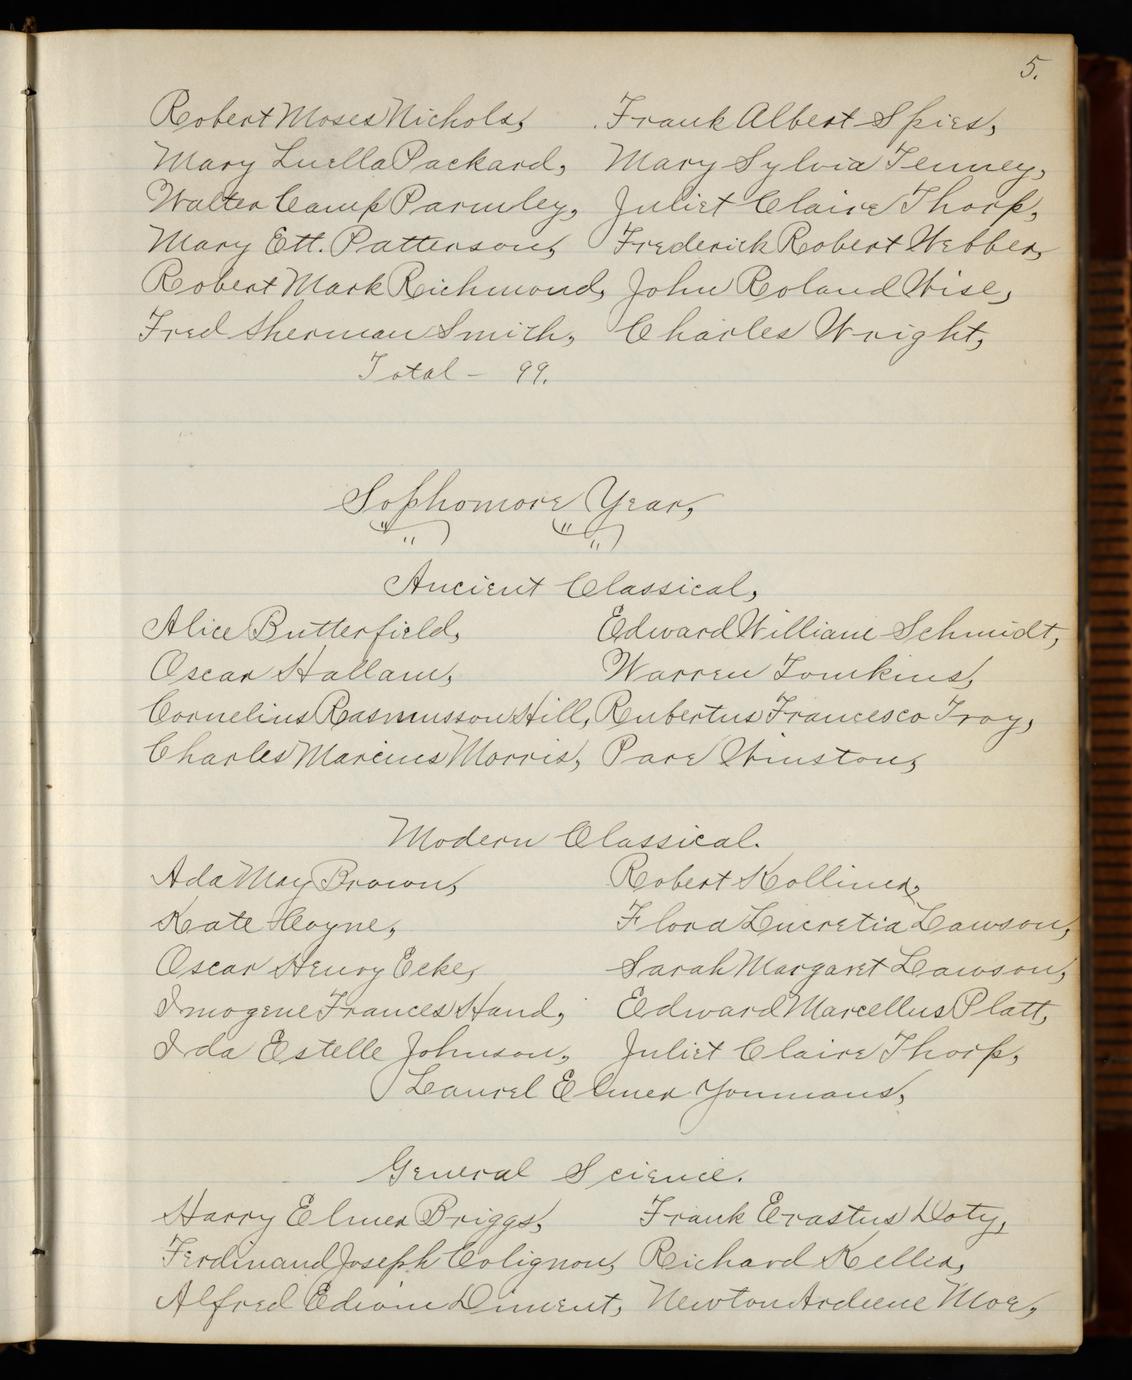 5.
Robert Moses Nichols, Frank Albert Spies,
Mary Luella Packard, Mary Sylvia Tenney,
Walter Camp Parmley, Juliet Claire Thorp,
Mary Ett. Patterson, Frederick Robert Webber,
Robert Mark Richmond, John Roland Wise,
Fred Sherman Smith, Charles Wright,
Total - 99.
Sophomore Year,
Ancient Classical,
Alice Butterfield, Edward William Schmidt,
Oscar Hallam, Warren Tomkins,
Cornelius Rasmusson Hill, Rubertus Francesco Troy,
Charles Marcius Morris, Pare Winston,
Modern Classical.
Ada May Brown, Robert Kolliner,
Kate Coyne, Flora Lucretia Lawson,
Oscar Henry Ecke, Sarah Margaret Lawson,
Imogene Frances Hand, Edward Marcellus Platt,
Ida Estelle Johnson, Juliet Claire Thorp,
Laurel Elmer Youmans,
General Science.
Harry Elmer Briggs, Frank Erastus Doty,
Ferdinand Joseph Colignon, Richard Keller,
Alfred Diment, Newton Moe,